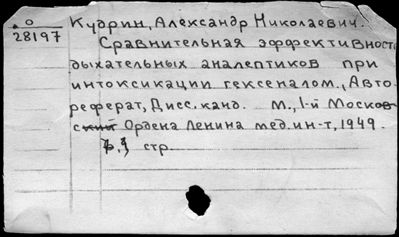 о
28197
Кудрин, Александр Николаевич.
Сравнительная эффективност
дыхательных аналептиков при
интоксикации гексеналом., Авто-
реферат, Дисс. канд. М., 1-й Москов-
ский Ордена Ленина мед. ин-т, 1949.
стр.